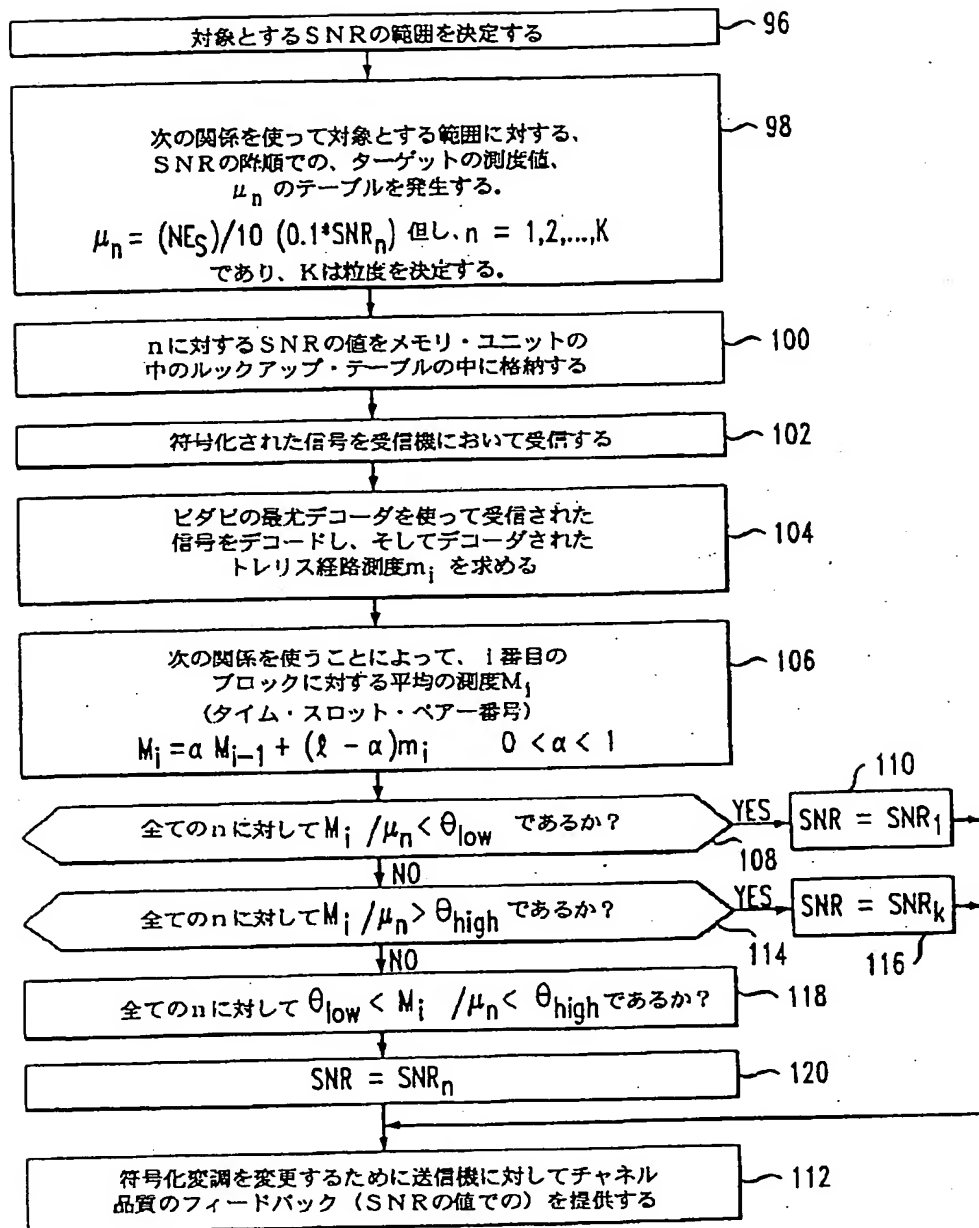 対象とするSNRの範囲を決定する
96
次の関係を使って対象とする範囲に対する、
SNRの降順での、ターゲットの測度値、
μn のテーブルを発生する。
μn = (NES)/10 (0.1*SNRn) 但し、n = 1,2,...,K
であり、Kは粒度を決定する。
98
nに対するSNRの値をメモリ・ユニットの
中のルックアップ・テーブルの中に格納する
100
符号化された信号を受信機において受信する
102
ビダビの最尤デコーダを使って受信された
信号をデコードし、そしてデコーダされた
トレリス経路測度mi を求める
104
次の関係を使うことによって、i番目の
ブロックに対する平均の測度Mi
(タイム・スロット・ペアー番号)
Mi = α Mi-1 + (ℓ - α)mi 0 < α < 1
106
全てのnに対してMi /μn < θlow であるか?
YES
108
110
SNR = SNR1
NO
全てのnに対してMi /μn > θhigh であるか?
YES
114
SNR = SNRk
116
NO
全てのnに対して θlow < Mi /μn < θhigh であるか?
118
SNR = SNRn
120
符号化変調を変更するために送信機に対してチャネル
品質のフィードバック(SNRの値での)を提供する
112